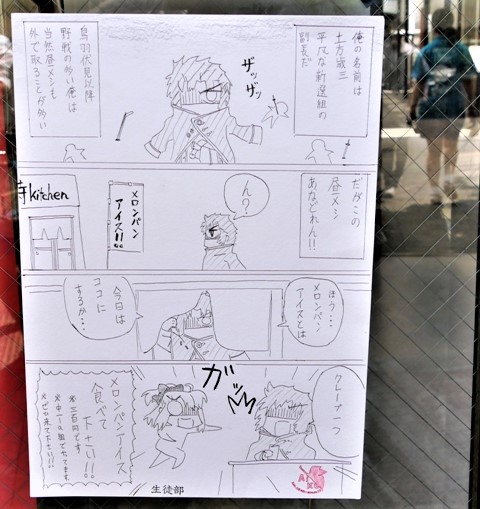 俺の名前は
土方歳三
平凡な新選組の
副長だ
ザッザッ
鳥羽伏見以降
野戦の多い俺は
当然昼メシも
外で取ることが多い
だがこの
昼メシ
あなどれん!!
ん?
メロンパン
アイス!!
kitchen
ほう…
メロンパン
アイスとは
今日は
ココに
するか…
クレープ一つ
ガッ
メロンパンアイス
食べて
下さい!!
※三百円です
生徒部